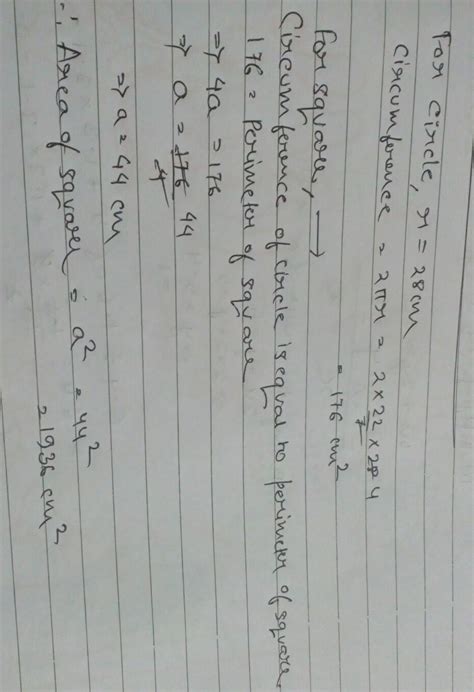 For circle, r = 28cm
Circumference = 2πr = 2 × 22/7 × 28 4
= 176 cm²
For square, →
Circumference of circle is equal to perimeter of square.
176 = Perimeter of square
⇒ 4a = 176
⇒ a = 176/4 44
⇒ a = 44 cm
∴ Area of square = a² = 44²
= 1936 cm²